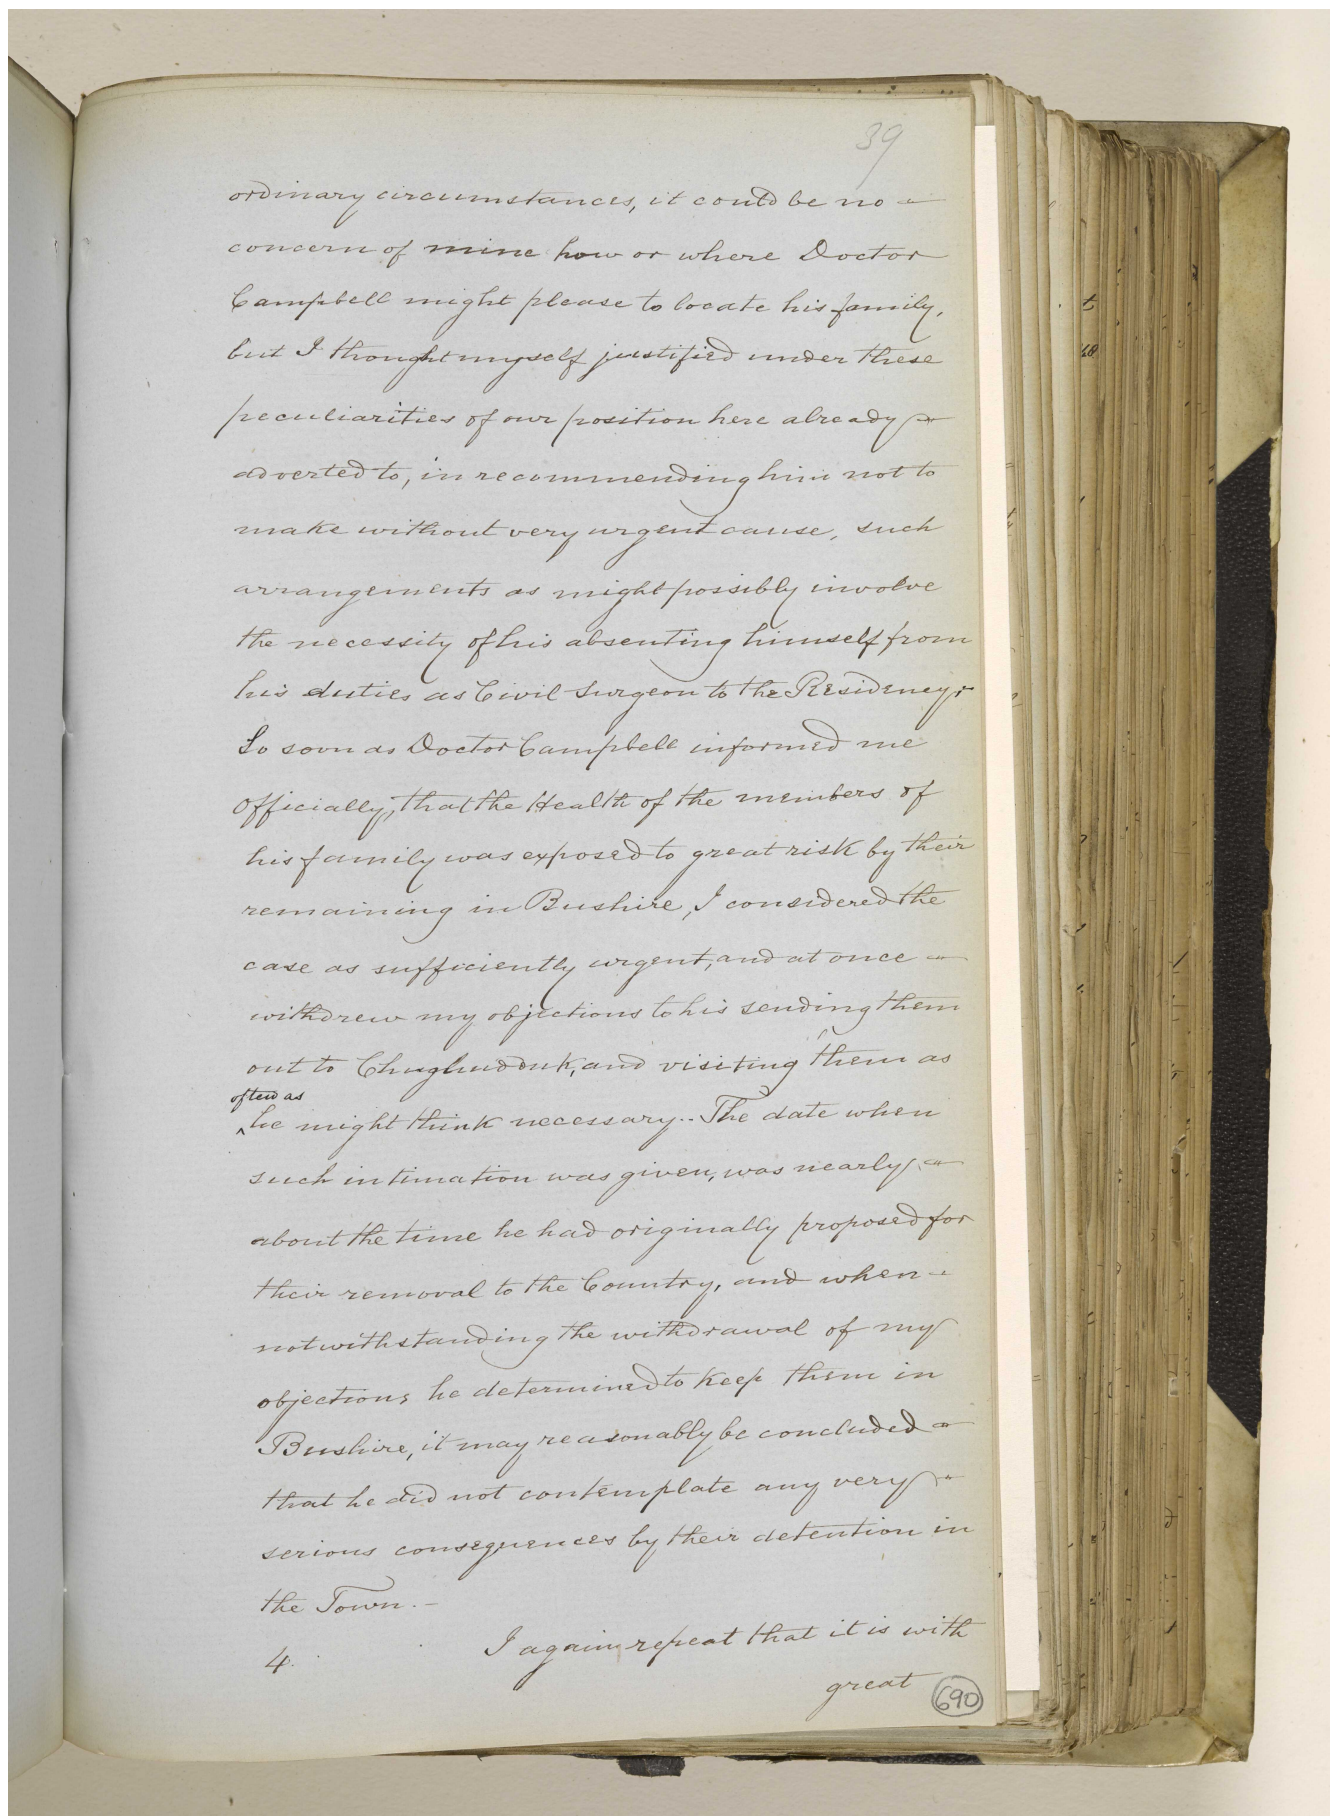 39
ordinary circumstances, it could be no
concern of mine how or where Doctor
Campbell might please to locate his family,
but I thought myself justified under these
peculiarities of our position here already
adverted to, in recommending him not to
make without very urgent cause, such
arrangements as might possibly involve
the necessity of his absenting himself from
his duties as Civil Surgeon to the Residency.
So soon as Doctor Campbell informed me
officially, that the Health of the members of
his family was exposed to great risk by their
remaining in Bushire, I considered the
case as sufficiently urgent, and at once
withdrew my objections to his sending them
out to Chughudduk, and visiting them as
often as
he might think necessary.. The date when
such intimation was given, was nearly
about the time he had originally proposed for
their removal to the Country, and when
notwithstanding the withdrawal of my
objections he determined to keep them in
Bushire, it may reasonably be concluded
that he did not contemplate any very
serious consequences by their detention in
the Town.-
4. I again repeat that it is with
great
690